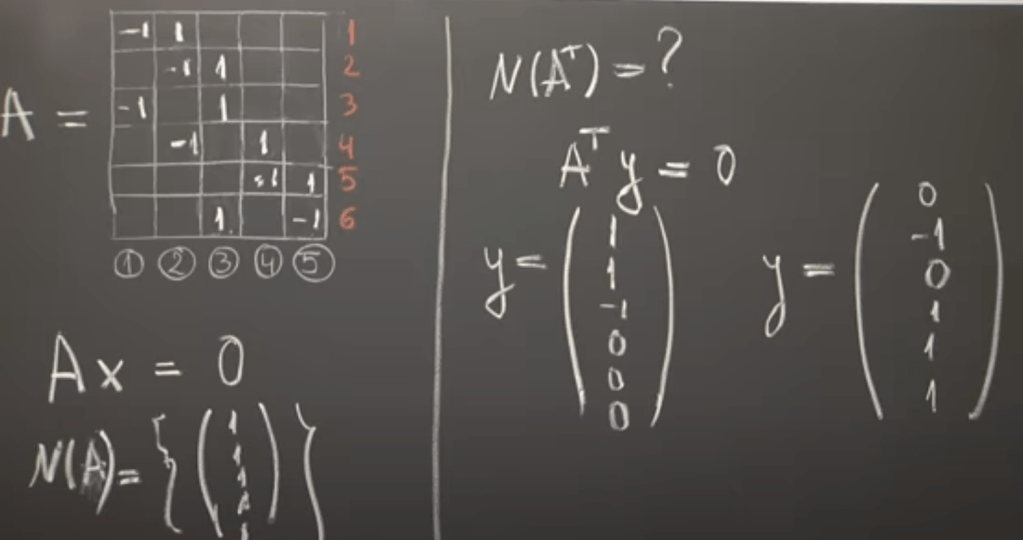 A =
-1 1 1
-1 1 2
-1 1 3
-1 1 4
-1 1 5
1 -1 6
① ② ③ ④ ⑤
Ax = 0
N(A) = { ( 1 1 1 1 1 ) }
N(Aᵀ) = ?
Aᵀ y = 0
y = ( 1 1 -1 0 0 0 )
y = ( 0 -1 0 1 1 1 )